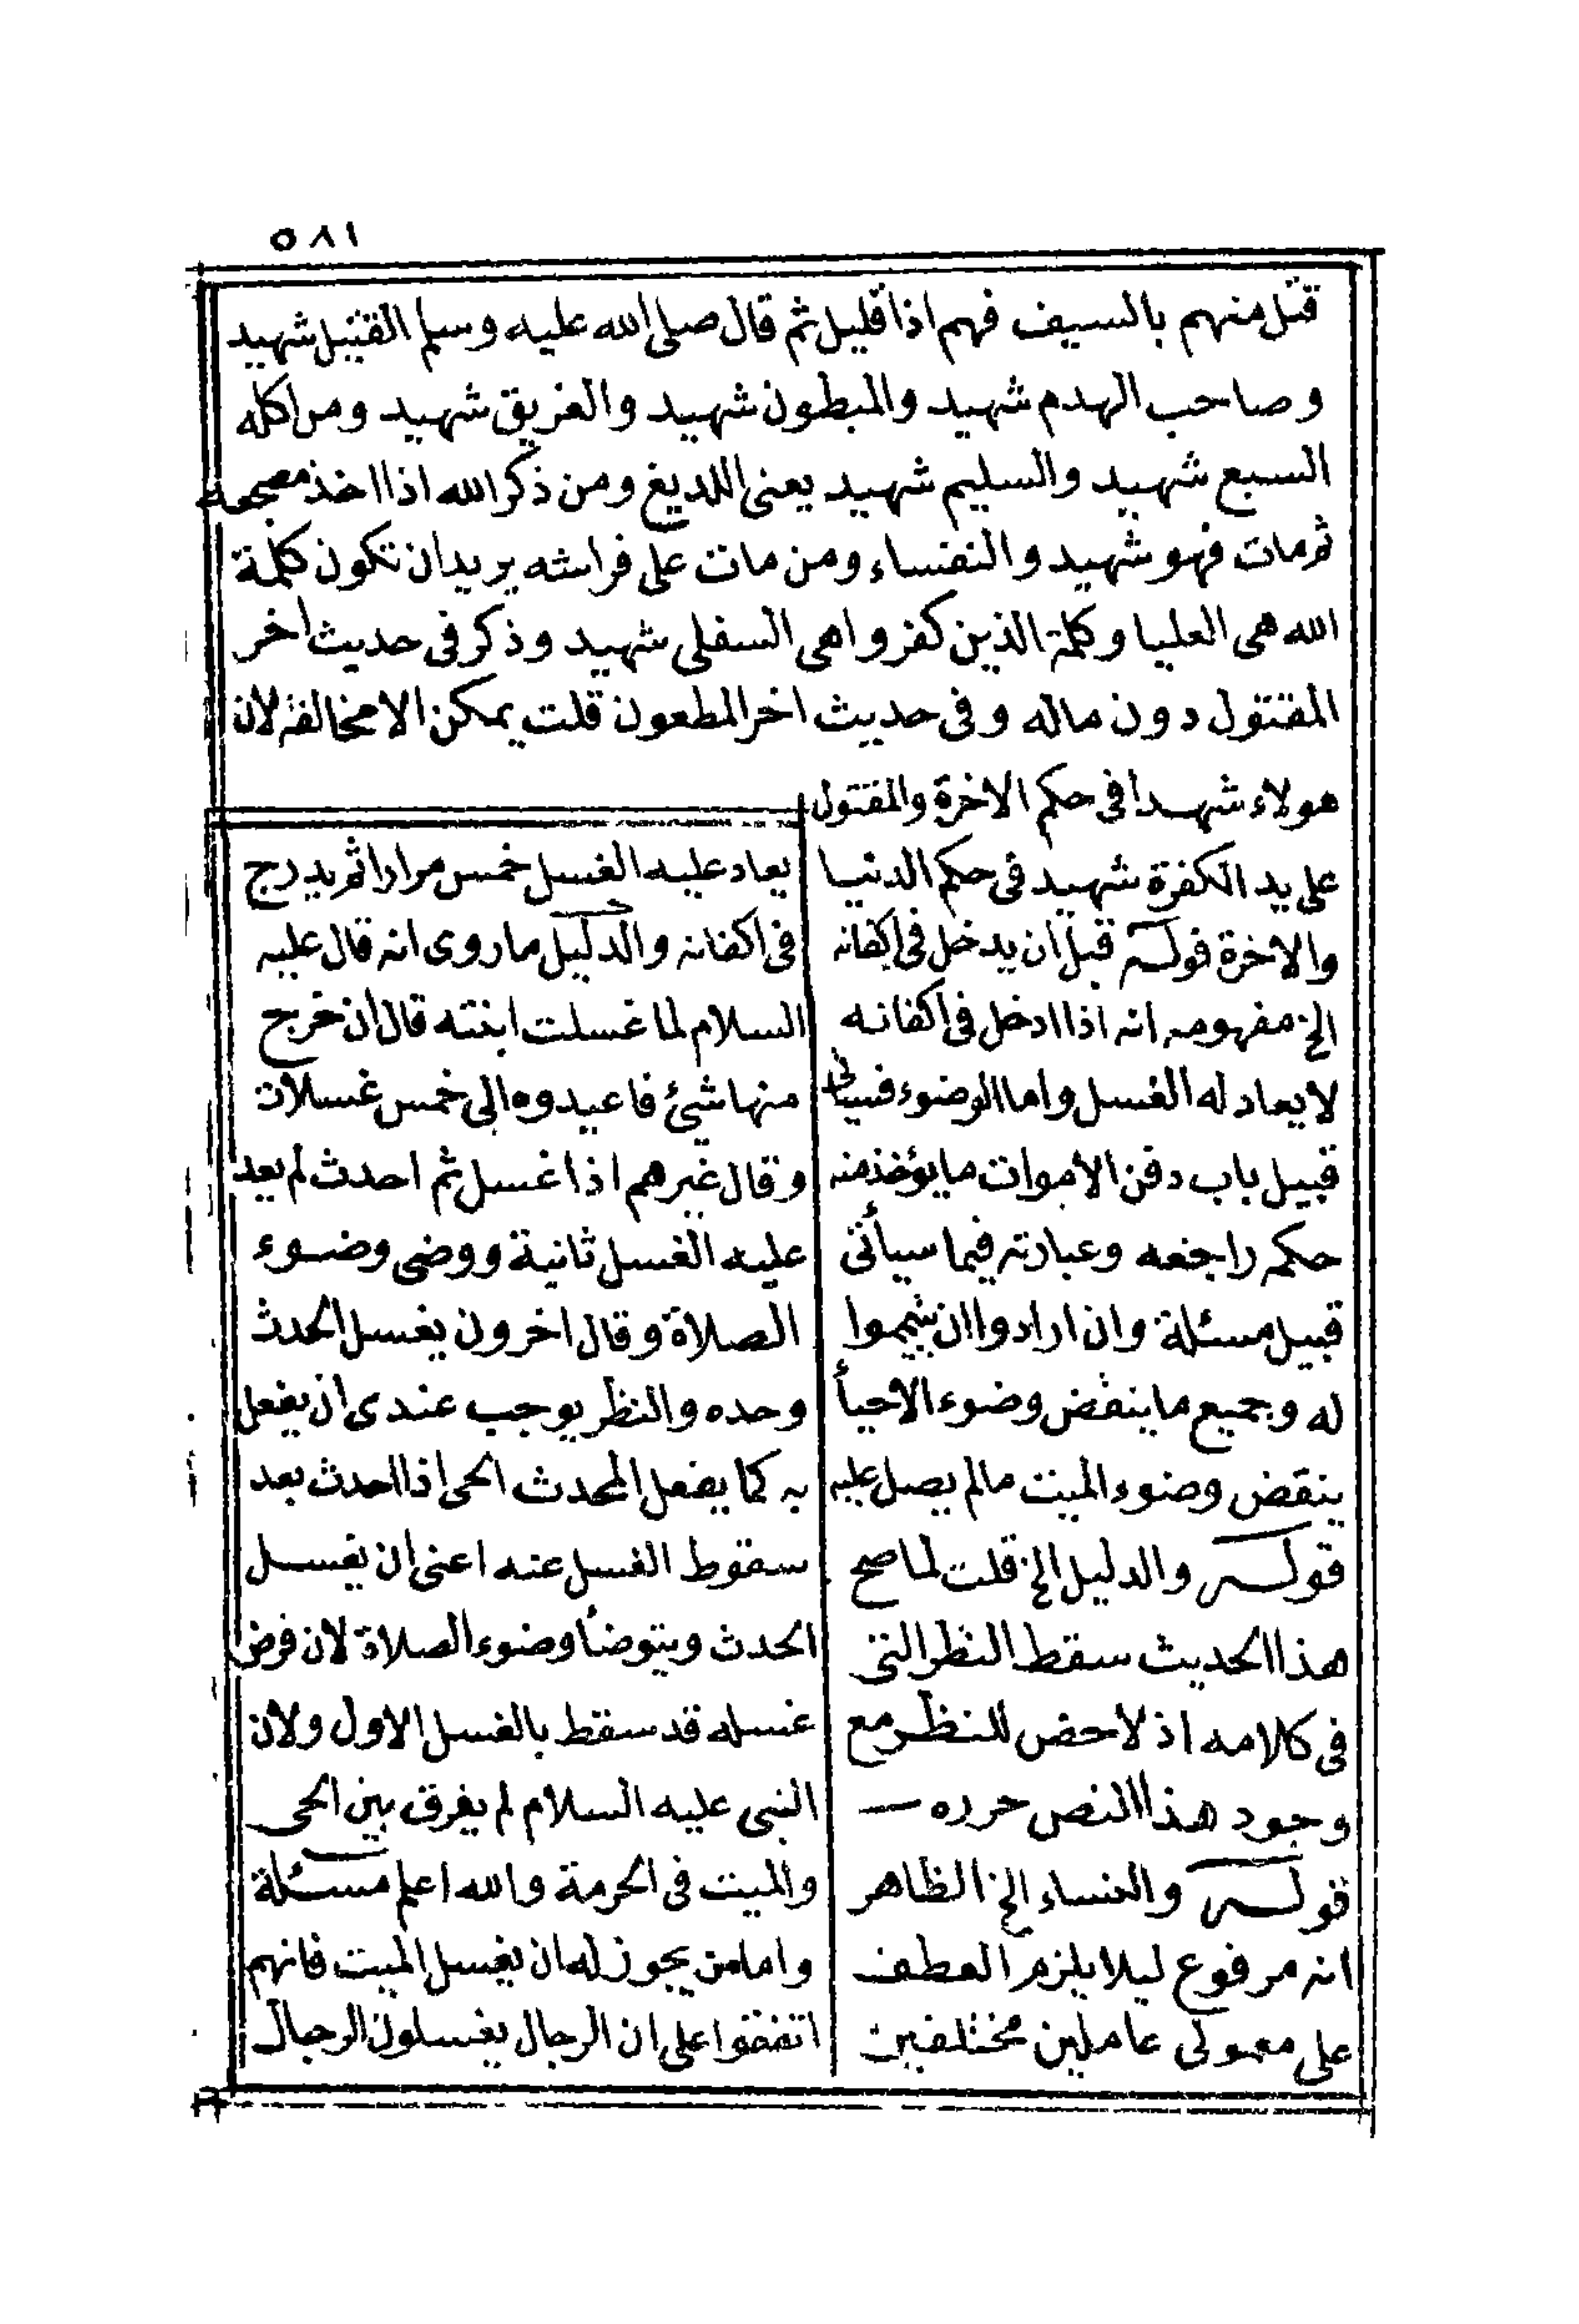 ٥٨١
قتل منهم بالسيف فهم اذا قليل ثم قال صلى الله عليه وسلم القتيل شهيد
وصاحب الهدم شهيد والمبطون شهيد والغريق شهيد ومن اكله
السبع شهيد والسليم شهيد يعني اللديغ ومن ذكر الله اذا اخذ مضجعه
ثم مات فهو شهيد والنفساء ومن مات على فراشه يريد ان تكون كلمة
الله هي العليا وكلمة الذين كفروا هي السفلى شهيد وذكر في حديث اخر
المقتول دون ماله وفي حديث اخر المطعون قلت يمكن الا مخالفة لان
هولاء شهدا في حكم الاخرة والمقتول
على يد الكفرة شهيد في حكم الدنيا
والاخرة قوله قبل ان يدخل في اكفانه
الخ مفهومه انه اذا ادخل في اكفانه
لا يعاد له الغسل واما الوضوء فسياتي
قبيل باب دفن الاموات ما يؤخذ منه
حكمه راجعه وعبارته فيما سيأتي
قبيل مسئلة وان ارادوا ان ييمموا
له وجميع ما ينقض وضوء الاحيأ
ينقض وضوء الميت مالم يصل عليه
قوله والدليل الخ قلت لما صح
هذا الحديث سقط النظر التى
في كلامه اذ لا حض للنظر مع
وجود هذا النص حرره
قوله والنساء الخ الظاهر
انه مرفوع ليلا يلزم العطف
على معمولى عاملين مختلفين
يعاد عليه الغسل خمس مرارا ثم يدرج
في اكفانه والدليل ما روى انه قال عليه
السلام لما غسلت ابنته قال ان خرج
منها شئ فاعيدوه الى خمس غسلات
وقال غيرهم اذا غسل ثم احدث لم يعد
عليه الغسل ثانية ووضى وضوء
الصلاة وقال اخرون يغسل الحدث
وحده والنظر يوجب عندى ان يفعل
به كما يفعل المحدث الحي اذا احدث بعد
سقوط الغسل عنه اعنى ان يغسل
الحدث ويتوضأ وضوء الصلاة لان فرض
غسله قد سقط بالغسل الاول ولان
النبى عليه السلام لم يفرق بين الحى
والميت في الحرمة والله اعلم مسئلة
واما من يجوز له ان يغسل الميت فانهم
اتفقوا على ان الرجال يغسلون الرجال